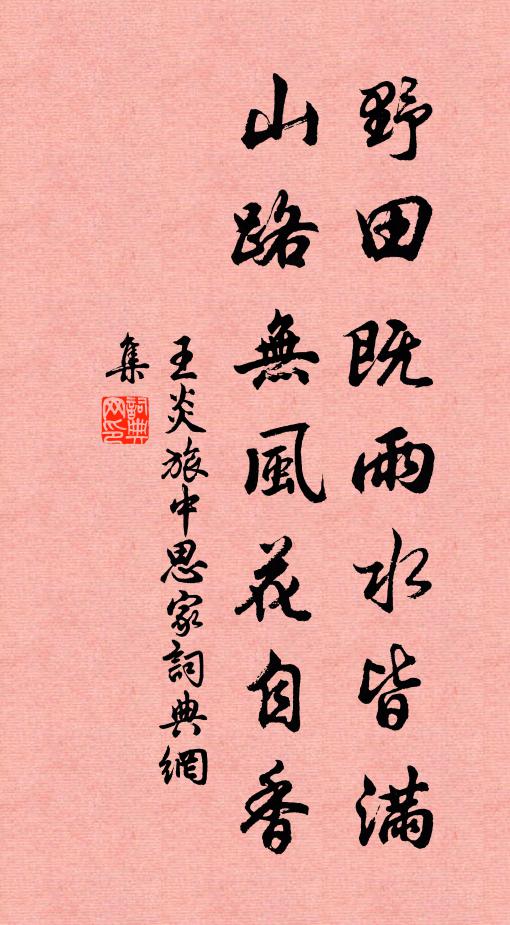 野田既雨水皆滿
山路無風花自香
王炎旅中思家詞典網
集
詞典
网印